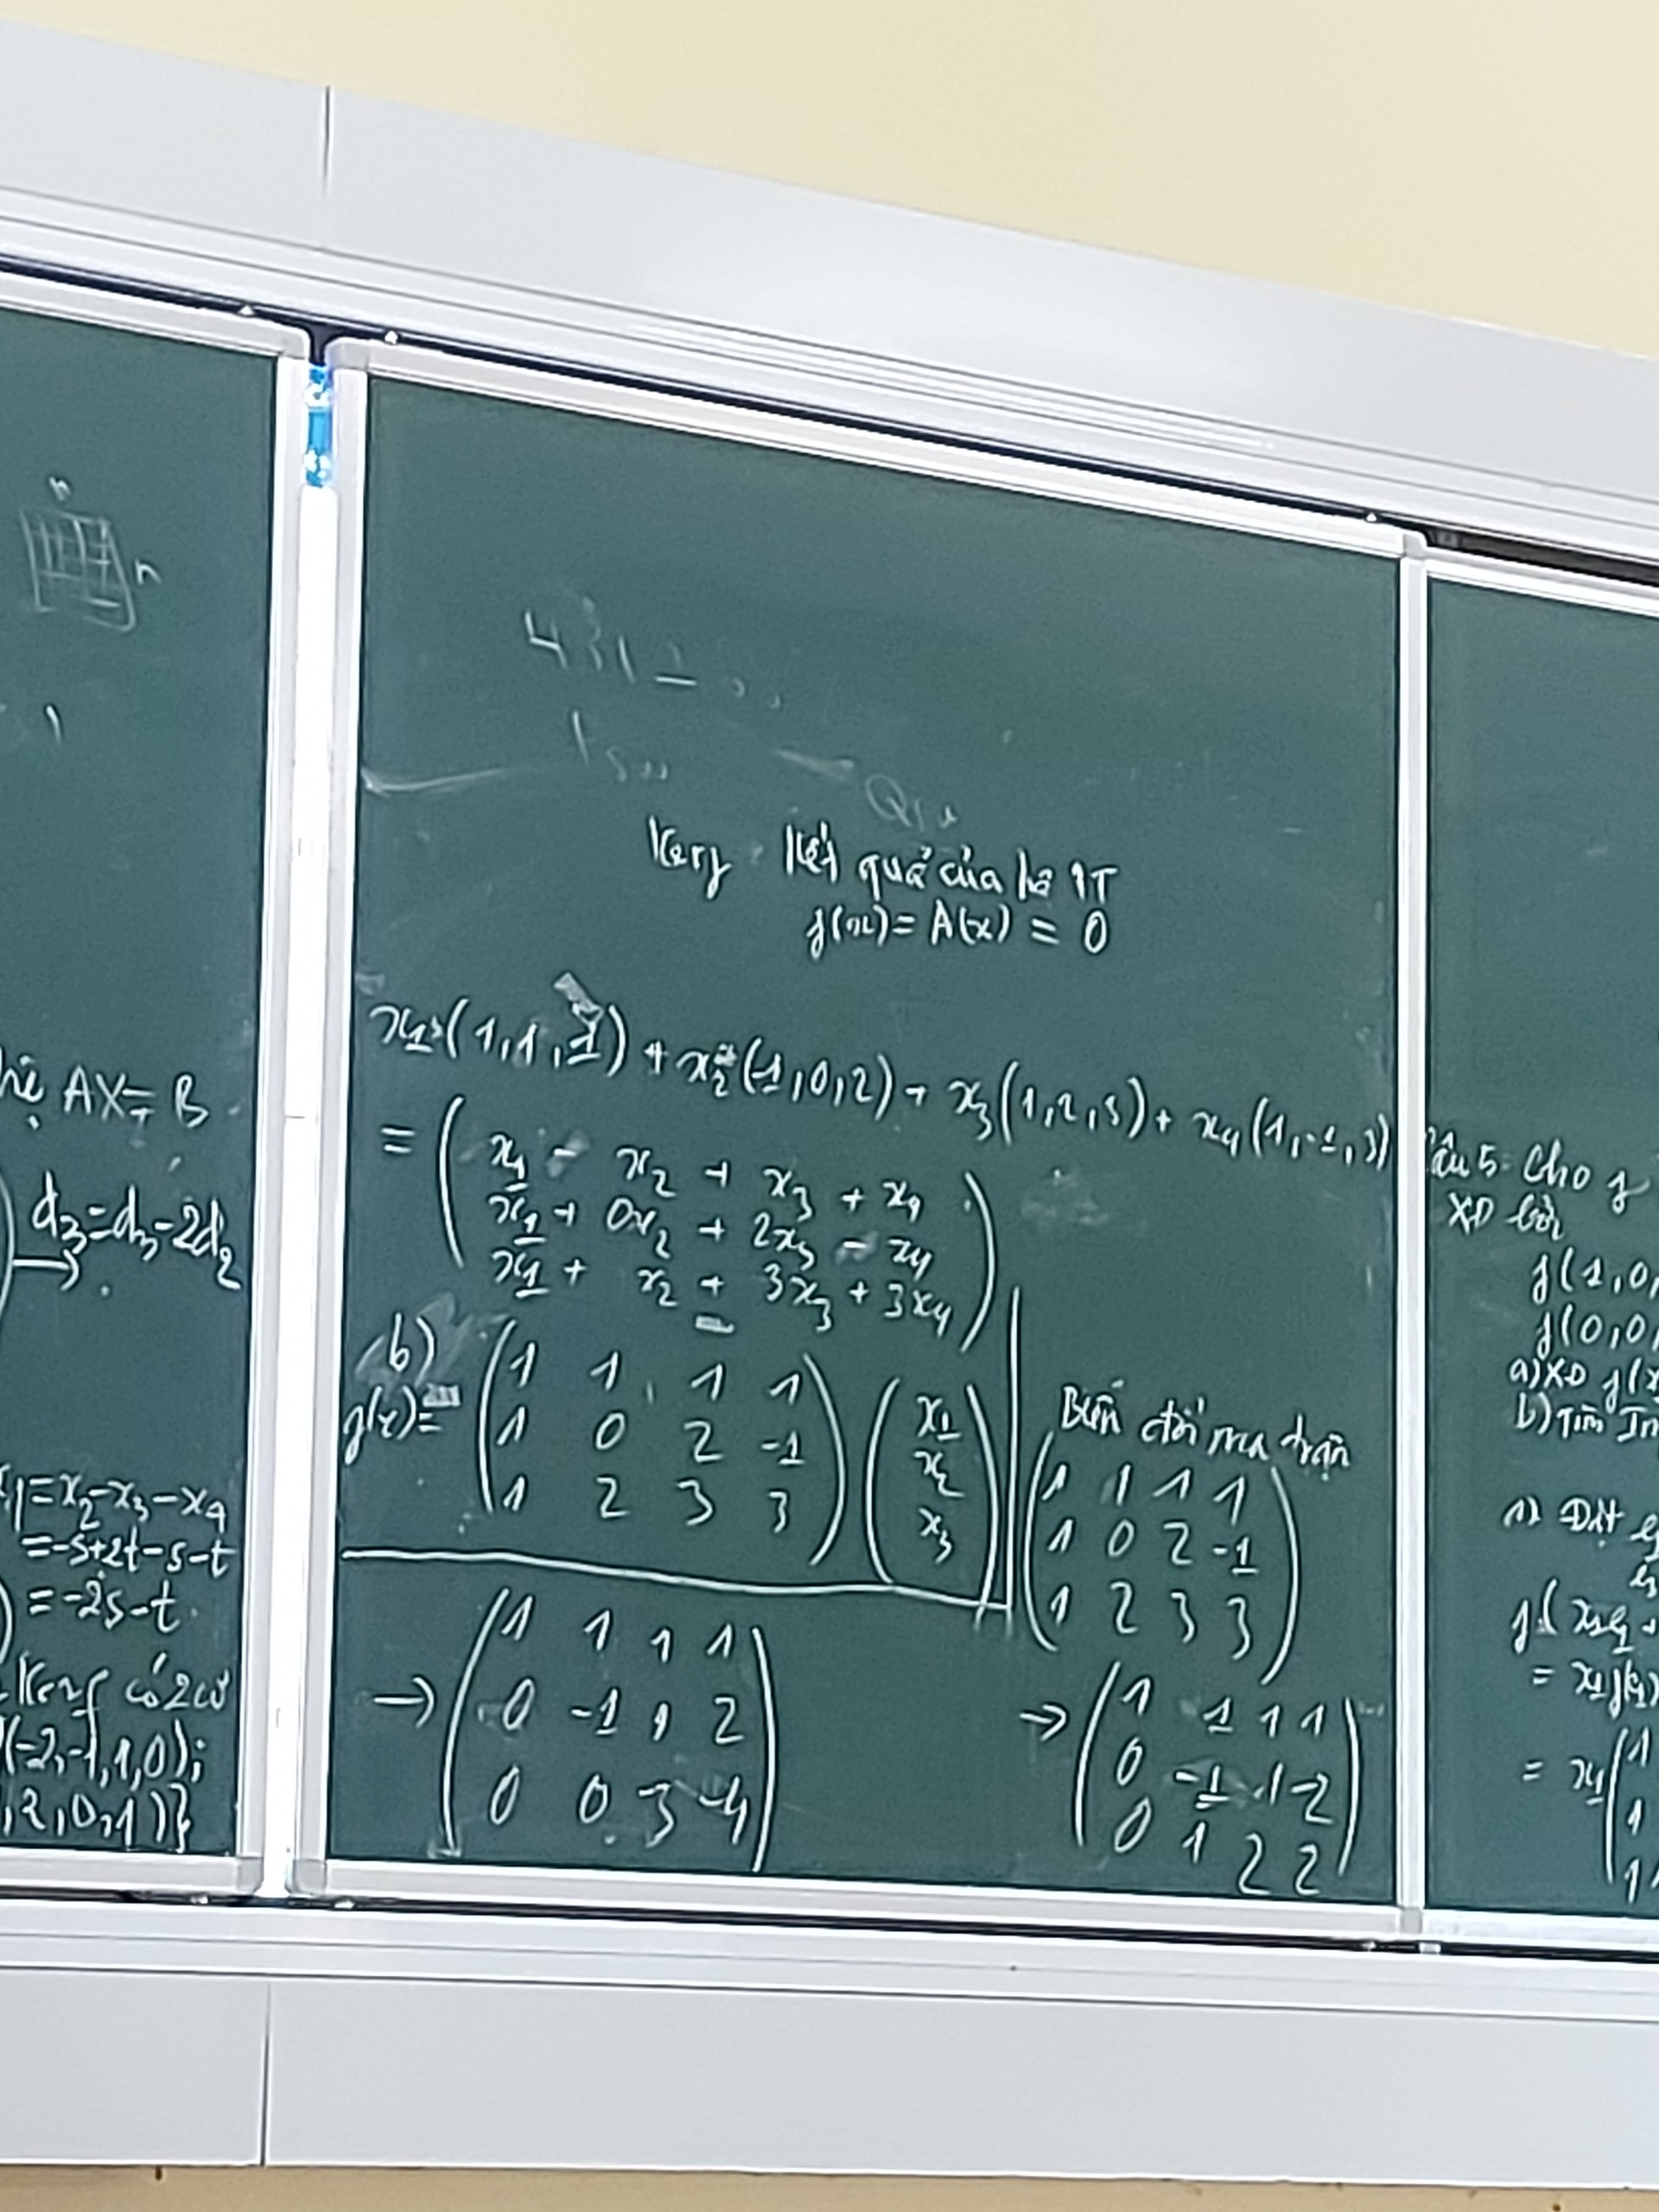 n
n
AX = B
d3 = d3 - 2d2
→
= x2 - x3 - x4
= -s+2t-s-t
= -2s-t
Kerf có 2 cơ
(-2,-1,1,0);
,2,0,1)}
431
Kerf : Kết quả của hệ PT
f(x) = A(x) = 0
x1(1,1,1) + x2(-1,0,2) + x3(1,2,3) + x4(1,-1,3)
= ( x1 - x2 + x3 + x4
x1 + 0x2 + 2x3 - x4
x1 + x2 + 3x3 + 3x4 )
b)
f(x) = ( 1 1 1 1
1 0 2 -1
1 2 3 3 ) ( x1
x2
x3 )
→ ( 1 1 1 1
0 -1 1 2
0 0 3 -4 )
Biến đổi ma trận
( 1 1 1 1
1 0 2 -1
1 2 3 3 )
→ ( 1 1 1 1
0 -1 1 -2
0 1 2 2 )
Câu 5: Cho f
XĐ bởi
f(1,0,
f(0,0,
a) XĐ f(x
b) Tìm Im
1) Đặt e
f( x1e1 +
= x1f(e1)
= x1( 1
1
1